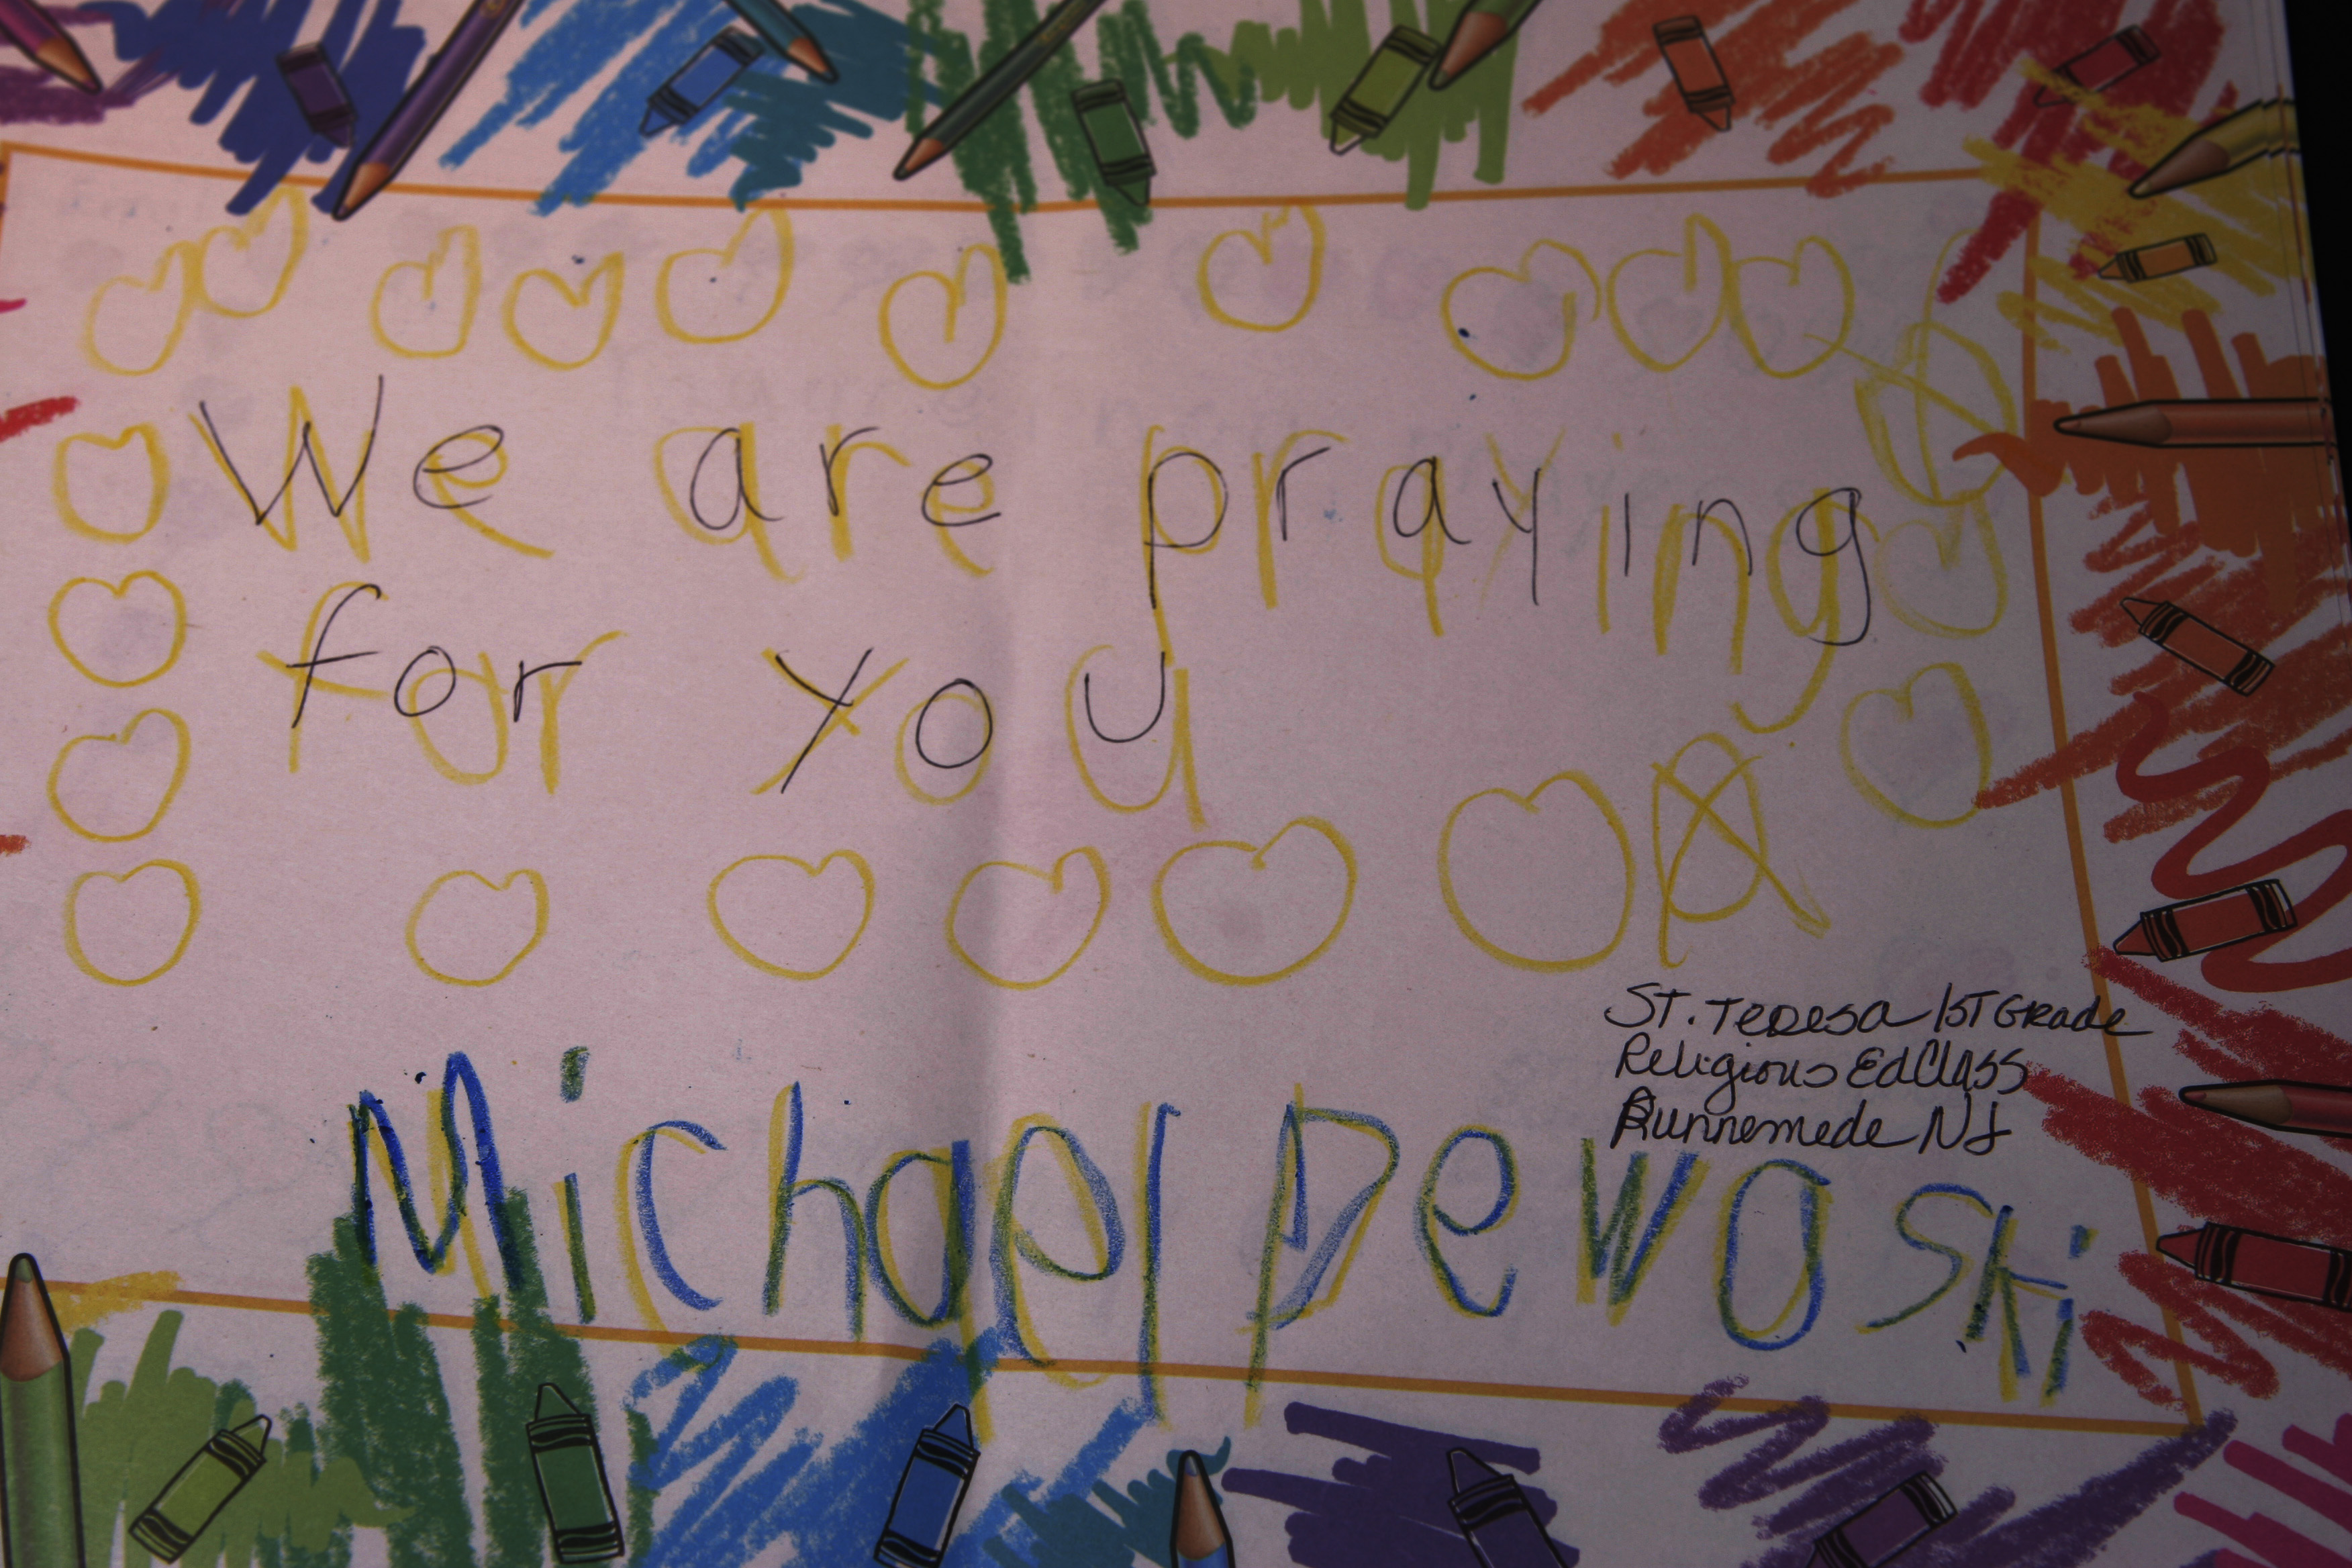 We are praying
for you
St. Teresa 1st Grade
Religious Ed Class
Runnemede NJ
Michael Dewoski